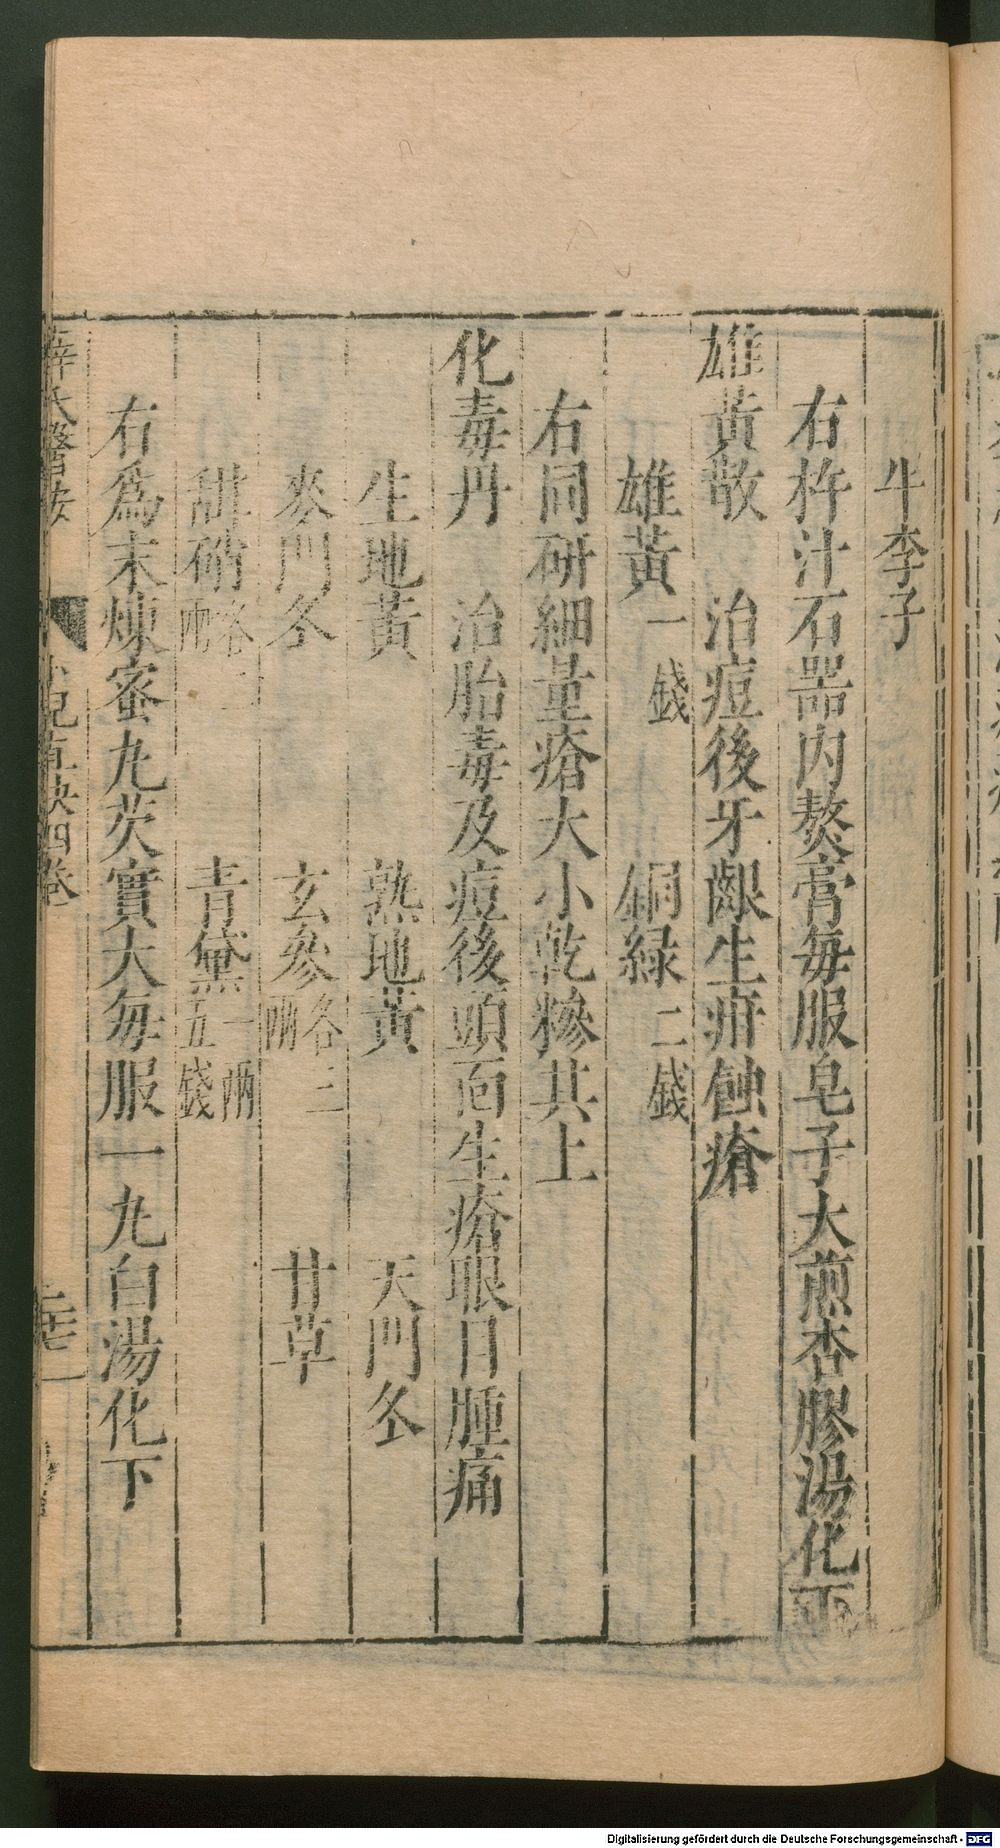 牛李子
右杵汁石器内熬膏每服皂子大煎杏膠湯化下
雄黃散　治痘後牙齦生疳蝕瘡
雄黃一錢　銅緑二錢
右同研細量瘡大小乾糝其上
化毒丹　治胎毒及痘後頭面生瘡眼目腫痛
生地黃　熟地黃　天門冬
麥門冬　玄參各三兩　甘草
甜硝各二兩　青黛一兩五錢
右爲末煉蜜丸芡實大每服一丸白湯化下
薛氏醫按　小兒直訣四卷
Digitalisierung gefördert durch die Deutsche Forschungsgemeinschaft - DFG